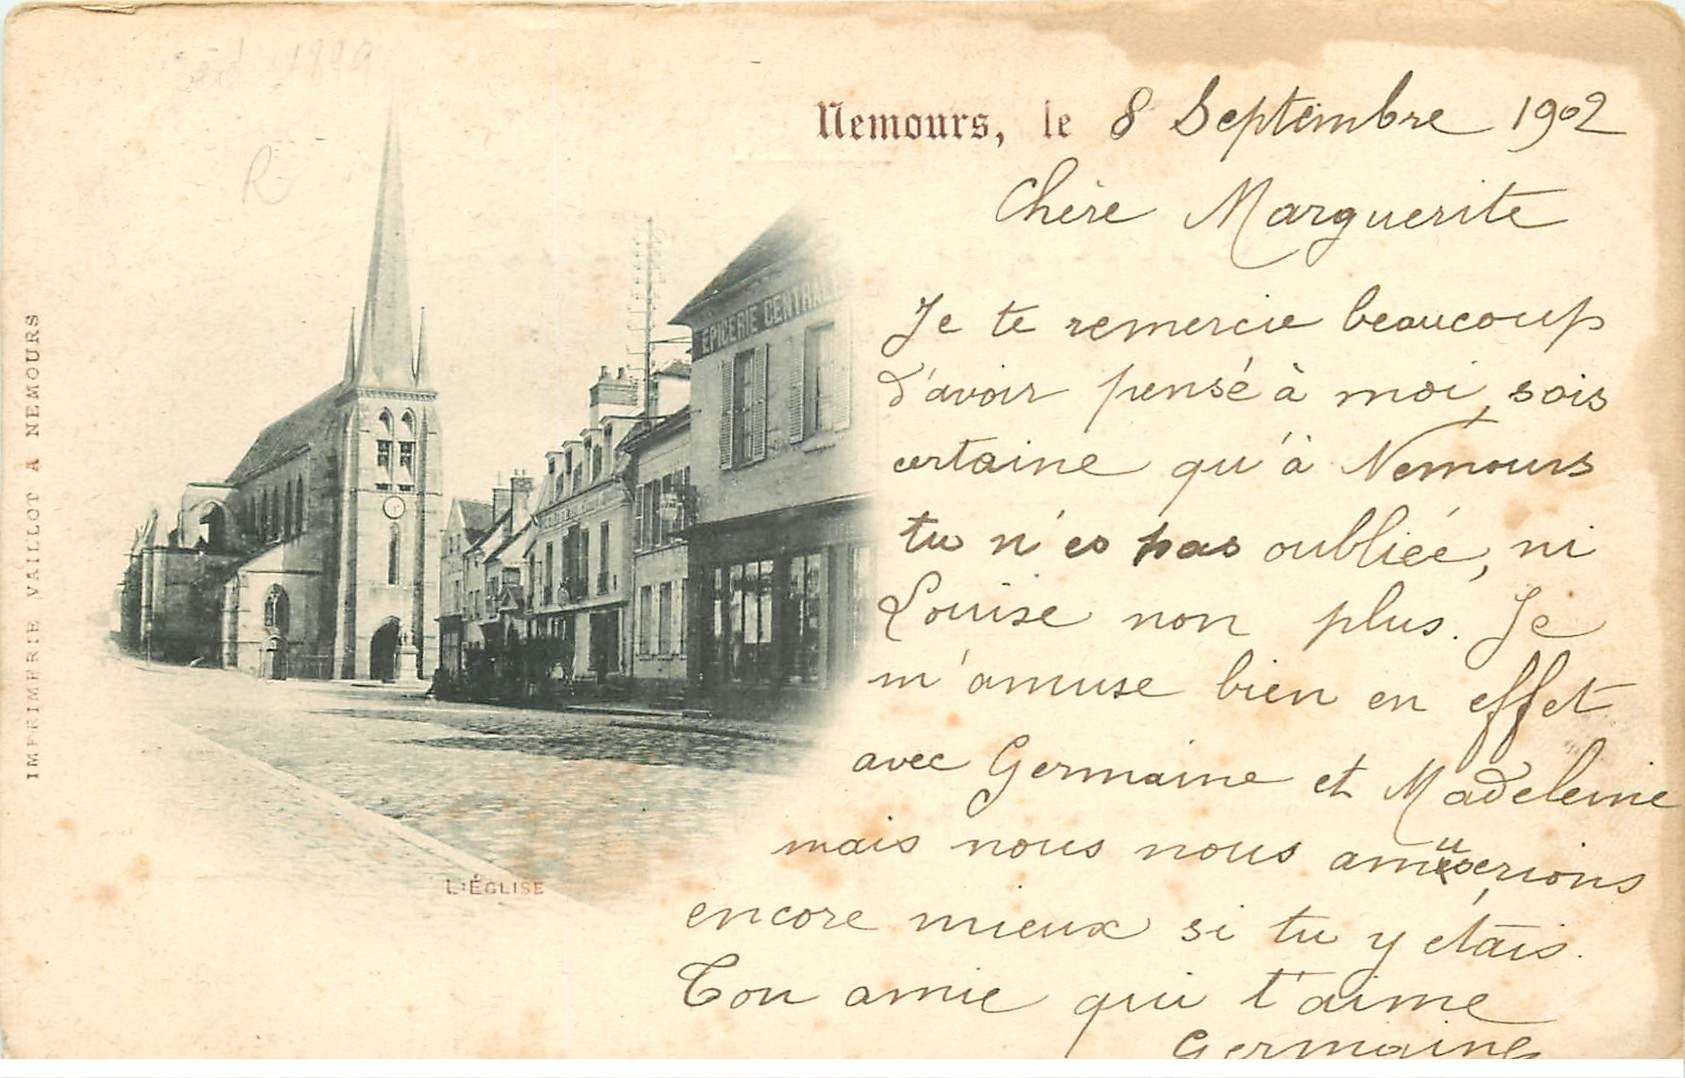 R
Nemours, le 8 Septembre 1902
Chère Marguerite
Je te remercie beaucoup
d'avoir pensé à moi, sois
certaine qu'à Nemours
tu n'es pas oubliée, ni
Louise non plus. Je
m'amuse bien en effet
avec Germaine et Madeleine
mais nous nous amuserions
encore mieux si tu y étais.
Ton amie qui t'aime
Germaine
EPICERIE CENTRALE
L'ÉGLISE
IMPRIMERIE VAILLOT A NEMOURS